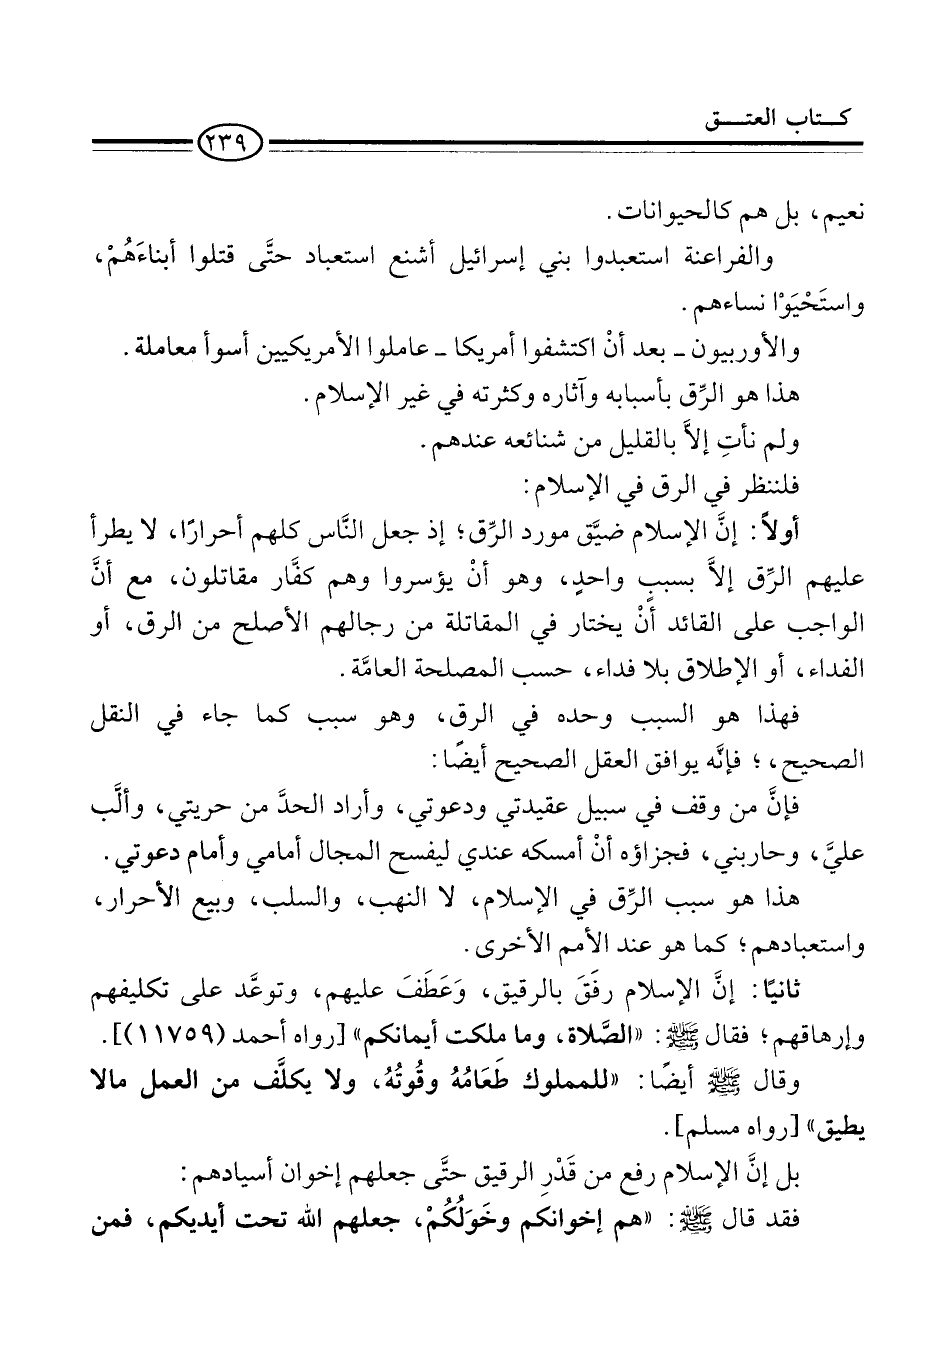 كـتاب العتـق
٢٣٩
نعيم، بل هم كالحيوانات.
والفراعنة استعبدوا بني إسرائيل أشنع استعباد حتَّى قتلوا أبناءَهُمْ،
واستَحْيَوْا نساءهم.
والأوربيون ـ بعد أنْ اكتشفوا أمريكا ـ عاملوا الأمريكيين أسوأ معاملة.
هذا هو الرِّق بأسبابه وآثاره وكثرته في غير الإسلام.
ولم نأتِ إلاَّ بالقليل من شنائعه عندهم.
فلننظر في الرق في الإسلام:
أولاً: إنَّ الإسلام ضيَّق مورد الرِّق؛ إذ جعل النَّاس كلهم أحرارًا، لا يطرأ
عليهم الرِّق إلاَّ بسببٍ واحدٍ، وهو أنْ يؤسروا وهم كفَّار مقاتلون، مع أنَّ
الواجب على القائد أنْ يختار في المقاتلة من رجالهم الأصلح من الرق، أو
الفداء، أو الإطلاق بلا فداء، حسب المصلحة العامَّة.
فهذا هو السبب وحده في الرق، وهو سبب كما جاء في النقل
الصحيح، ؛ فإنَّه يوافق العقل الصحيح أيضًا:
فإنَّ من وقف في سبيل عقيدتي ودعوتي، وأراد الحدَّ من حريتي، وألَّب
عليَّ، وحاربني، فجزاؤه أنْ أمسكه عندي ليفسح المجال أمامي وأمام دعوتي.
هذا هو سبب الرِّق في الإسلام، لا النهب، والسلب، وبيع الأحرار،
واستعبادهم؛ كما هو عند الأمم الأخرى.
ثانيًا: إنَّ الإسلام رفَقَ بالرقيق، وَعَطَفَ عليهم، وتوعَّد على تكليفهم
وإرهاقهم؛ فقال ﷺ: «الصَّلاة، وما ملكت أيمانكم» [رواه أحمد (١١٧٥٩)].
وقال ﷺ أيضًا: «للمملوك طَعَامُهُ وقُوتُهُ، ولا يكلَّف من العمل مالا
يطيق» [رواه مسلم].
بل إنَّ الإسلام رفع من قَدْرِ الرقيق حتَّى جعلهم إخوان أسيادهم:
فقد قال ﷺ: «هم إخوانكم وخَوَلُكُمْ، جعلهم الله تحت أيديكم، فمن